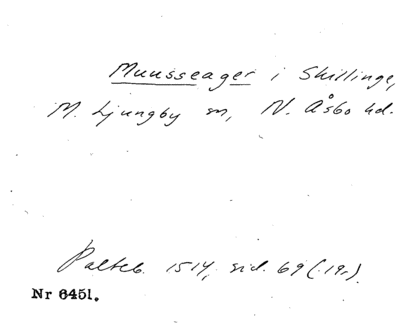 Muusseager i Skillinge,
M. Ljungby sn, N. Åsbo hd.
Palteb. 1514, sid. 69 (19r).
Nr 6451.